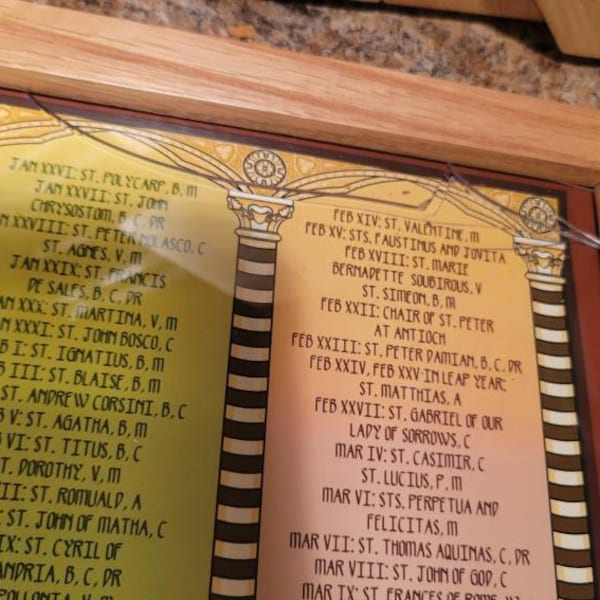 JAN XXVI: ST. POLYCARP, B, M
JAN XXVII: ST. JOHN
CHRYSOSTOM, B, C, DR
XXVIII: ST. PETER NOLASCO, C
ST. AGNES, V, M
JAN XXIX: ST. FRANCIS
DE SALES, B, C, DR
XXX: ST. MARTINA, V, M
XXXI: ST. JOHN BOSCO, C
I: ST. IGNATIUS, B, M
III: ST. BLAISE, B, M
ST. ANDREW CORSINI, B, C
V: ST. AGATHA, B, M
VI: ST. TITUS, B, C
DOROTHY, V, M
ST. ROMUALD, A
ST. JOHN OF MATHA, C
ST. CYRIL OF
B, C, DR
V, M
FEB XIV: ST. VALENTINE, M
FEB XV: STS. FAUSTINUS AND JOVITA
FEB XVIII: ST. MARIE
BERNADETTE SOUBIROUS, V
ST. SIMEON, B, M
FEB XXII: CHAIR OF ST. PETER
AT ANTIOCH
FEB XXIII: ST. PETER DAMIAN, B, C, DR
FEB XXIV, FEB XXV IN LEAP YEAR:
ST. MATTHIAS, A
FEB XXVII: ST. GABRIEL OF OUR
LADY OF SORROWS, C
MAR IV: ST. CASIMIR, C
ST. LUCIUS, P, M
MAR VI: STS. PERPETUA AND
FELICITAS, M
MAR VII: ST. THOMAS AQUINAS, C, DR
MAR VIII: ST. JOHN OF GOD, C
MAR IX: ST. FRANCES OF ROME,